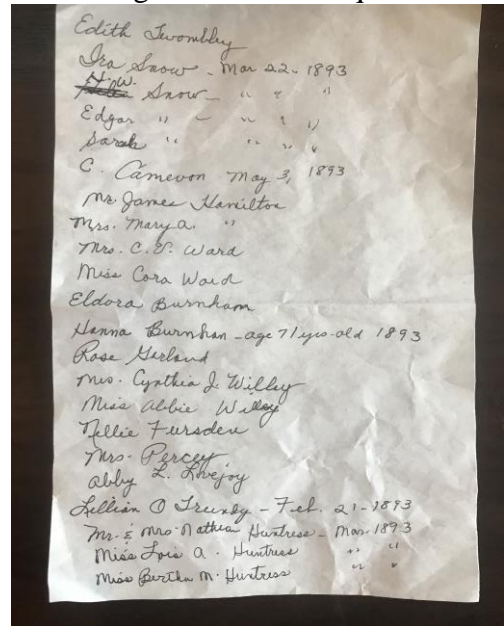 Edith Twombley
Ira Snow - Mar 22 - 1893
H. W.
Snow - " " "
Edgar " - " " "
Sarah " " " "
C. Cameron May 3, 1893
Mr. James Hamilton
Mrs. Mary A. "
Mrs. C. E. Ward
Miss Cora Ward
Eldora Burnham
Hanna Burnham - age 71 yrs-old 1893
Rose Garland
Mrs. Cynthia J. Willey
Miss Abbie Willey
Nellie Fursden
Mrs. Percey
Abby L. Lovejoy
Lillian O - Feb. 21 - 1893
Mr. & Mrs. Nathan Huntress - Mar. 1893
Miss Lois A. Huntress " "
Miss Bertha M. Huntress " "